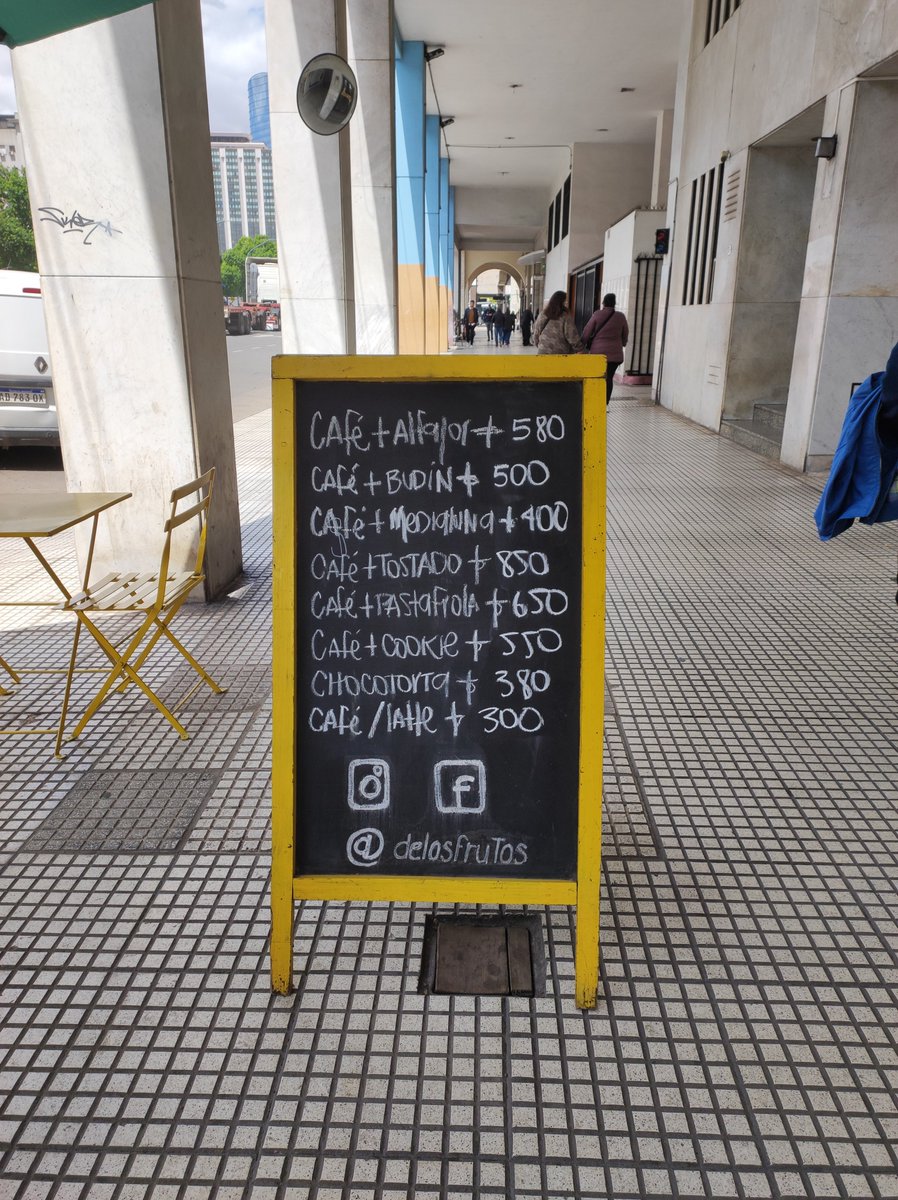 Café + Alfajor $ 580
Café + BUDIN $ 500
Café + Medialuna $ 400
Café + TOSTADO $ 850
Café + Pastafrola $ 650
Café + COOKIE $ 550
CHOCOTORTA $ 380
Café / latte $ 300
@ delosfrutos
AD 783 OX